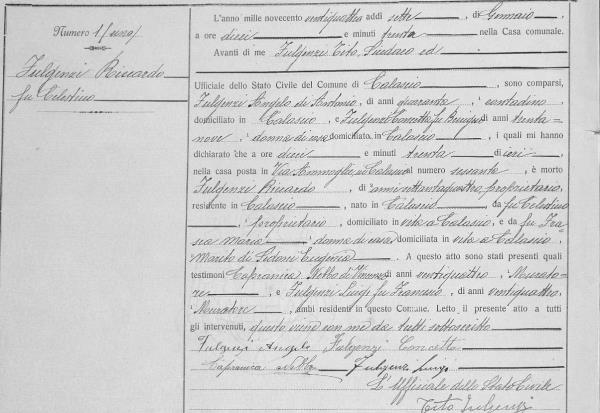 Numero 1 (uno)
Fulgenzi Riccardo
fu Celestino
L'anno mille novecento ventiquattro addì sette, di Gennaio,
a ore dieci e minuti trenta nella Casa comunale.
Avanti di me Fulgenzi Tito, Sindaco ed
Ufficiale dello Stato Civile del Comune di Calascio, sono comparsi,
Fulgenzi Angelo di Antonio, di anni quaranta, contadino
domiciliato in Calascio, e Fulgenzi Concetta fu di anni trenta
nove, donna di casa domiciliata, in Calascio, i quali mi hanno
dichiarato che a ore dieci e minuti trenta di ieri, nella
casa posta in Via in Calascio al numero sessanta, è morto
Fulgenzi Riccardo, di anni settantaquattro, proprietario,
residente in Calascio, nato in Calascio, da fu Celestino
, proprietario, domiciliato in vita a Calascio, e da fu Fra-
sca Maria, donna di casa domiciliata in vita a Calascio,
Marito di Sidoni Eugenia. A questo atto sono stati presenti quali
testimoni Capranica di Vincenzo di anni ventiquattro, Murato-
re, e Fulgenzi Luigi fu Francesco, di anni ventiquattro,
Muratore, ambi residenti in questo Comune. Letto il presente atto a tutti
gli intervenuti, questo viene con me da tutti sottoscritto
Fulgenzi Angelo Fulgenzi Concetta
Capranica Fulgenzi Luigi
L'Ufficiale dello Stato Civile
Tito Fulgenzi